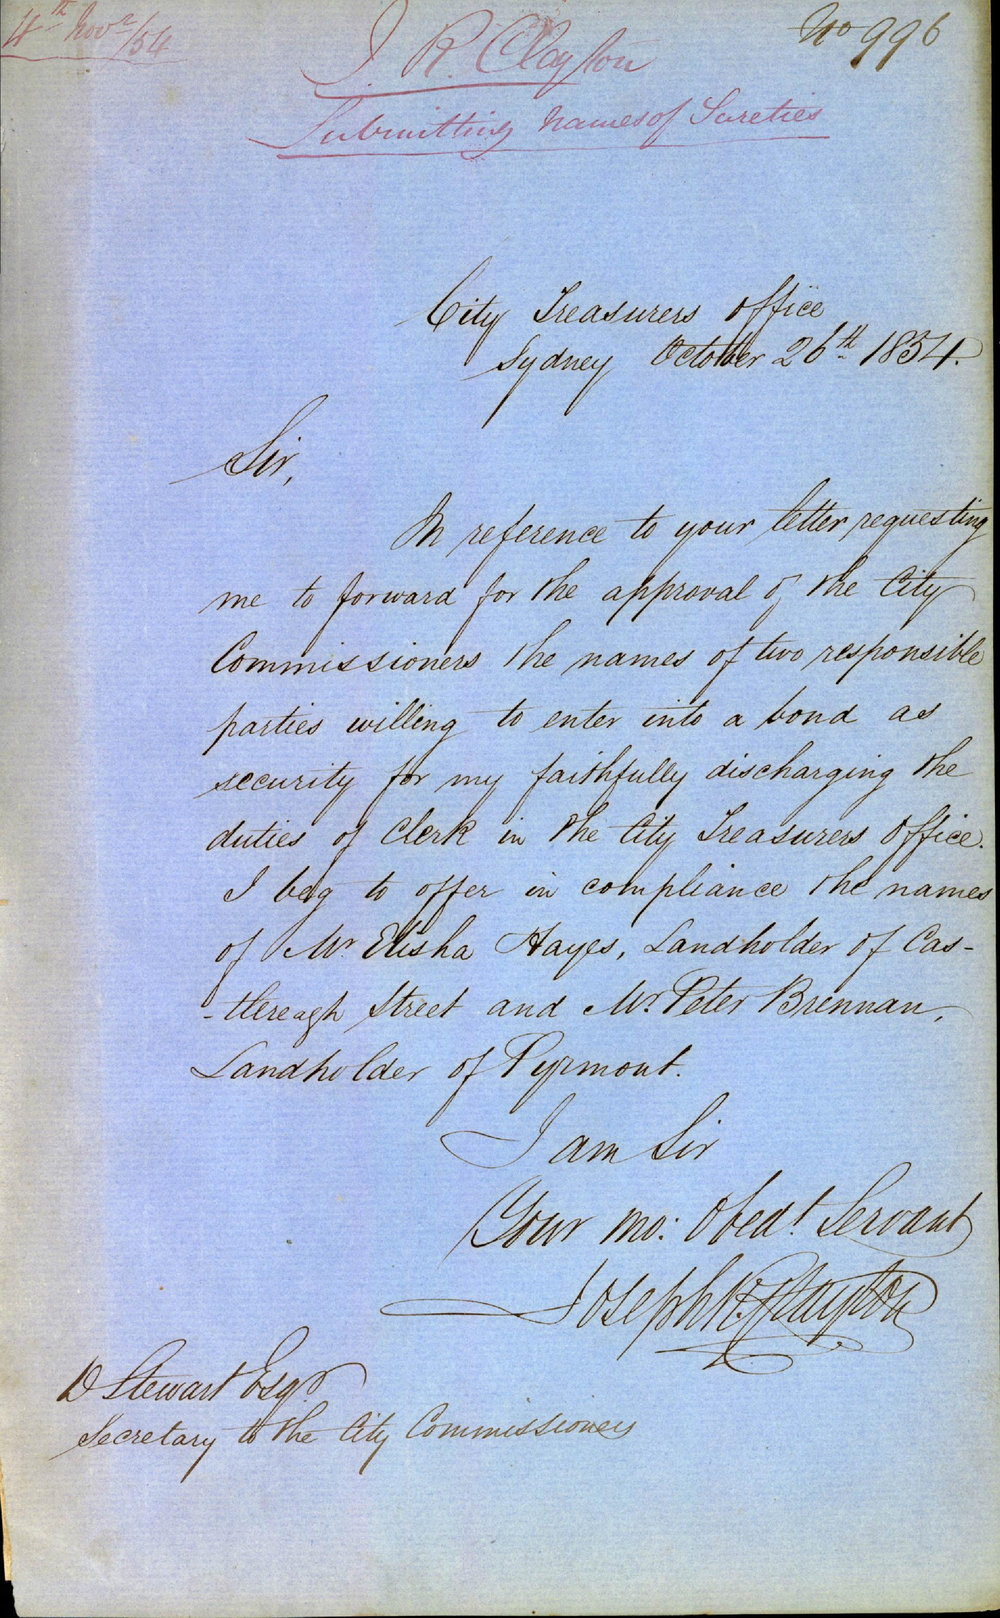 4th Novr/54
No 996
J. R. Clayton
Submitting Names of Sureties
City Treasurers Office
Sydney October 26th 1854.
Sir,
In reference to your letter requesting
me to forward for the approval of the City
Commissioners the names of two responsible
parties willing to enter into a bond as
security for my faithfully discharging the
duties of Clerk in the City Treasurers Office.
I beg to offer in compliance the names
of Mr. Elisha Hayes, Landholder of Cas-
-thereagh Street and Mr. Peter Brennan,
Landholder of Pyrmont.
I am Sir
Your mo: Obedt. Servant
Joseph R. Clayton
D Stewart Esqr
Secretary to the City Commissioners